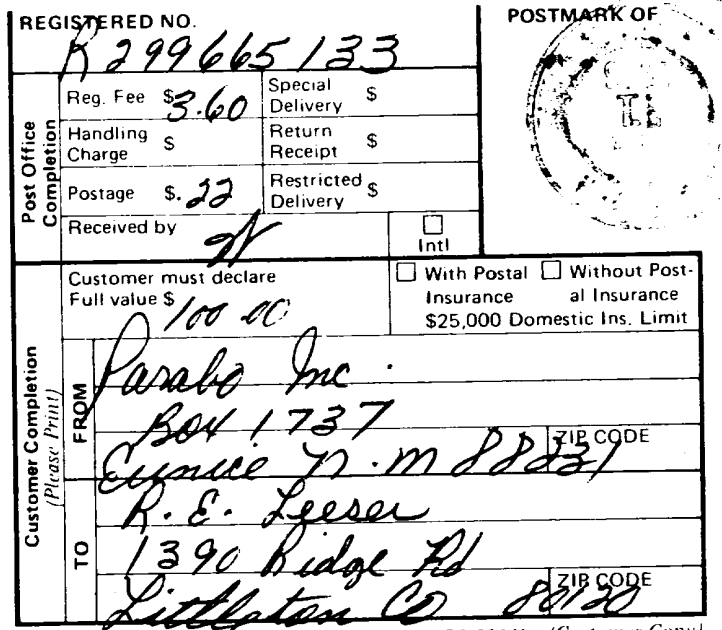 REGISTERED NO.
R 299665133
POSTMARK OF
Post Office Completion
Reg. Fee $ 3.60
Special Delivery $
Handling Charge $
Return Receipt $
Postage $ .22
Restricted Delivery $
Received by
Intl
Customer Completion
(Please Print)
Customer must declare
Full value $ 100.00
With Postal Insurance
Without Postal Insurance
$25,000 Domestic Ins. Limit
FROM
Parabo Inc.
Box 1737
ZIP CODE
Eunice N.M 88231
TO
R. E. Leeser
1390 Ridge Rd
ZIP CODE
Littleton CO 80120
(Customer Copy)